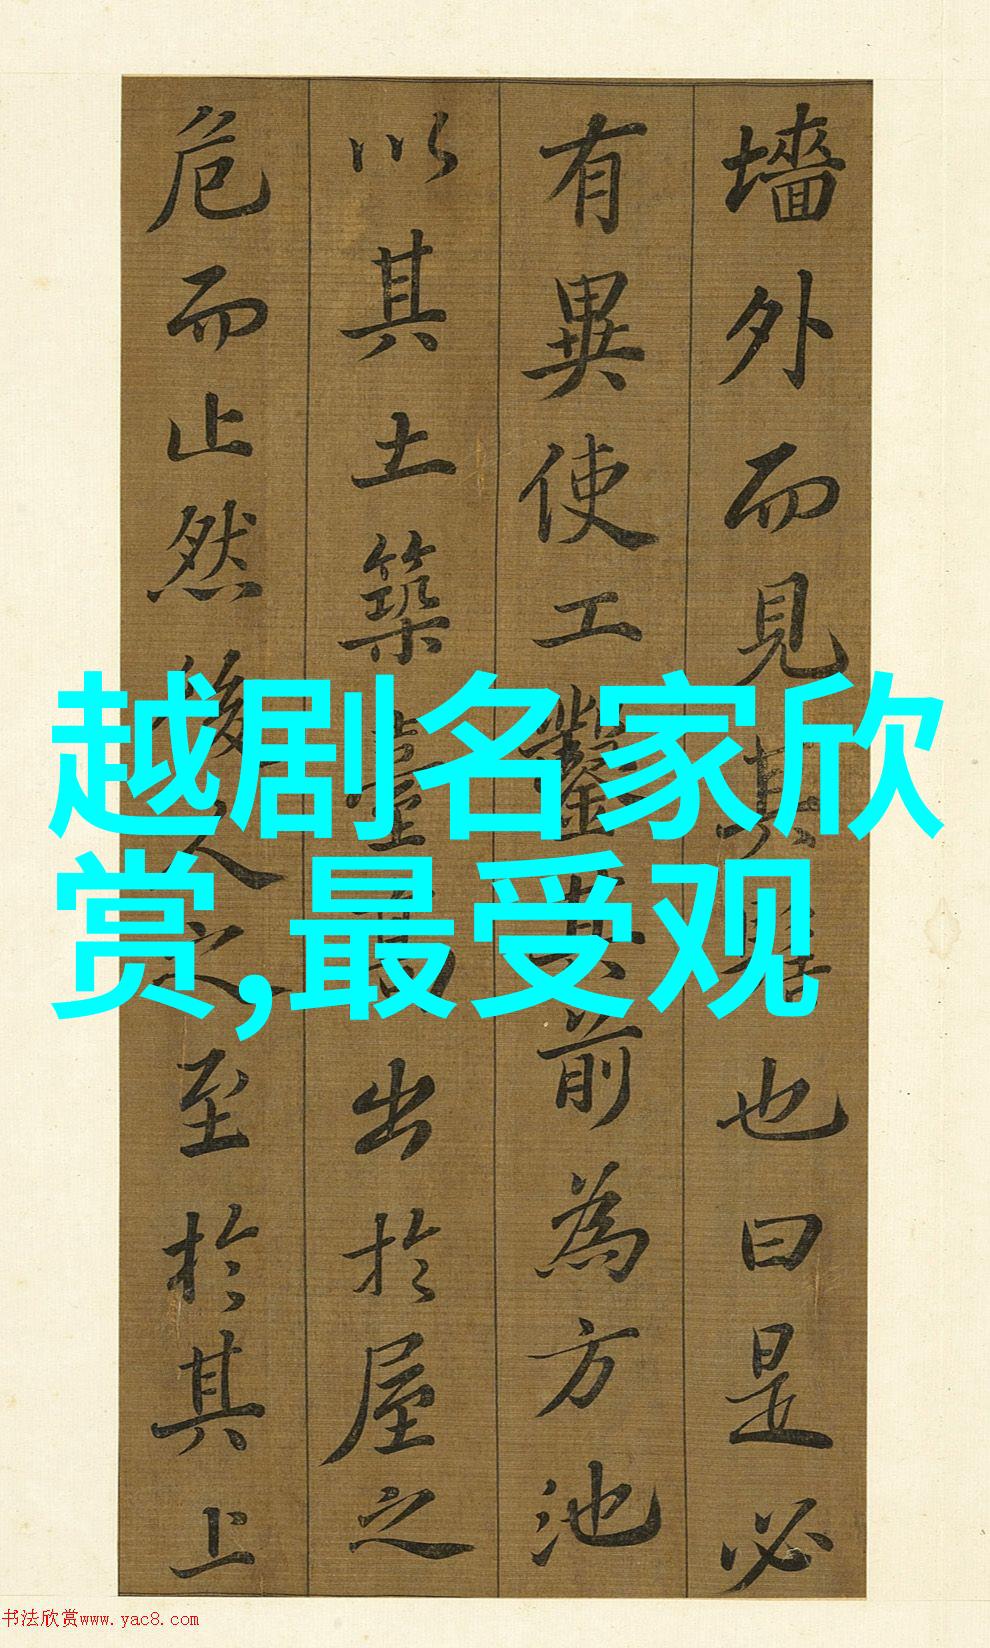 墙外而見其髻也曰是必
有異使工鑿其前為方池
以其土築臺高出於屋之
危而止然後人之至於其上
越剧名家欣
赏,最受观
书法欣赏www.yac8.com